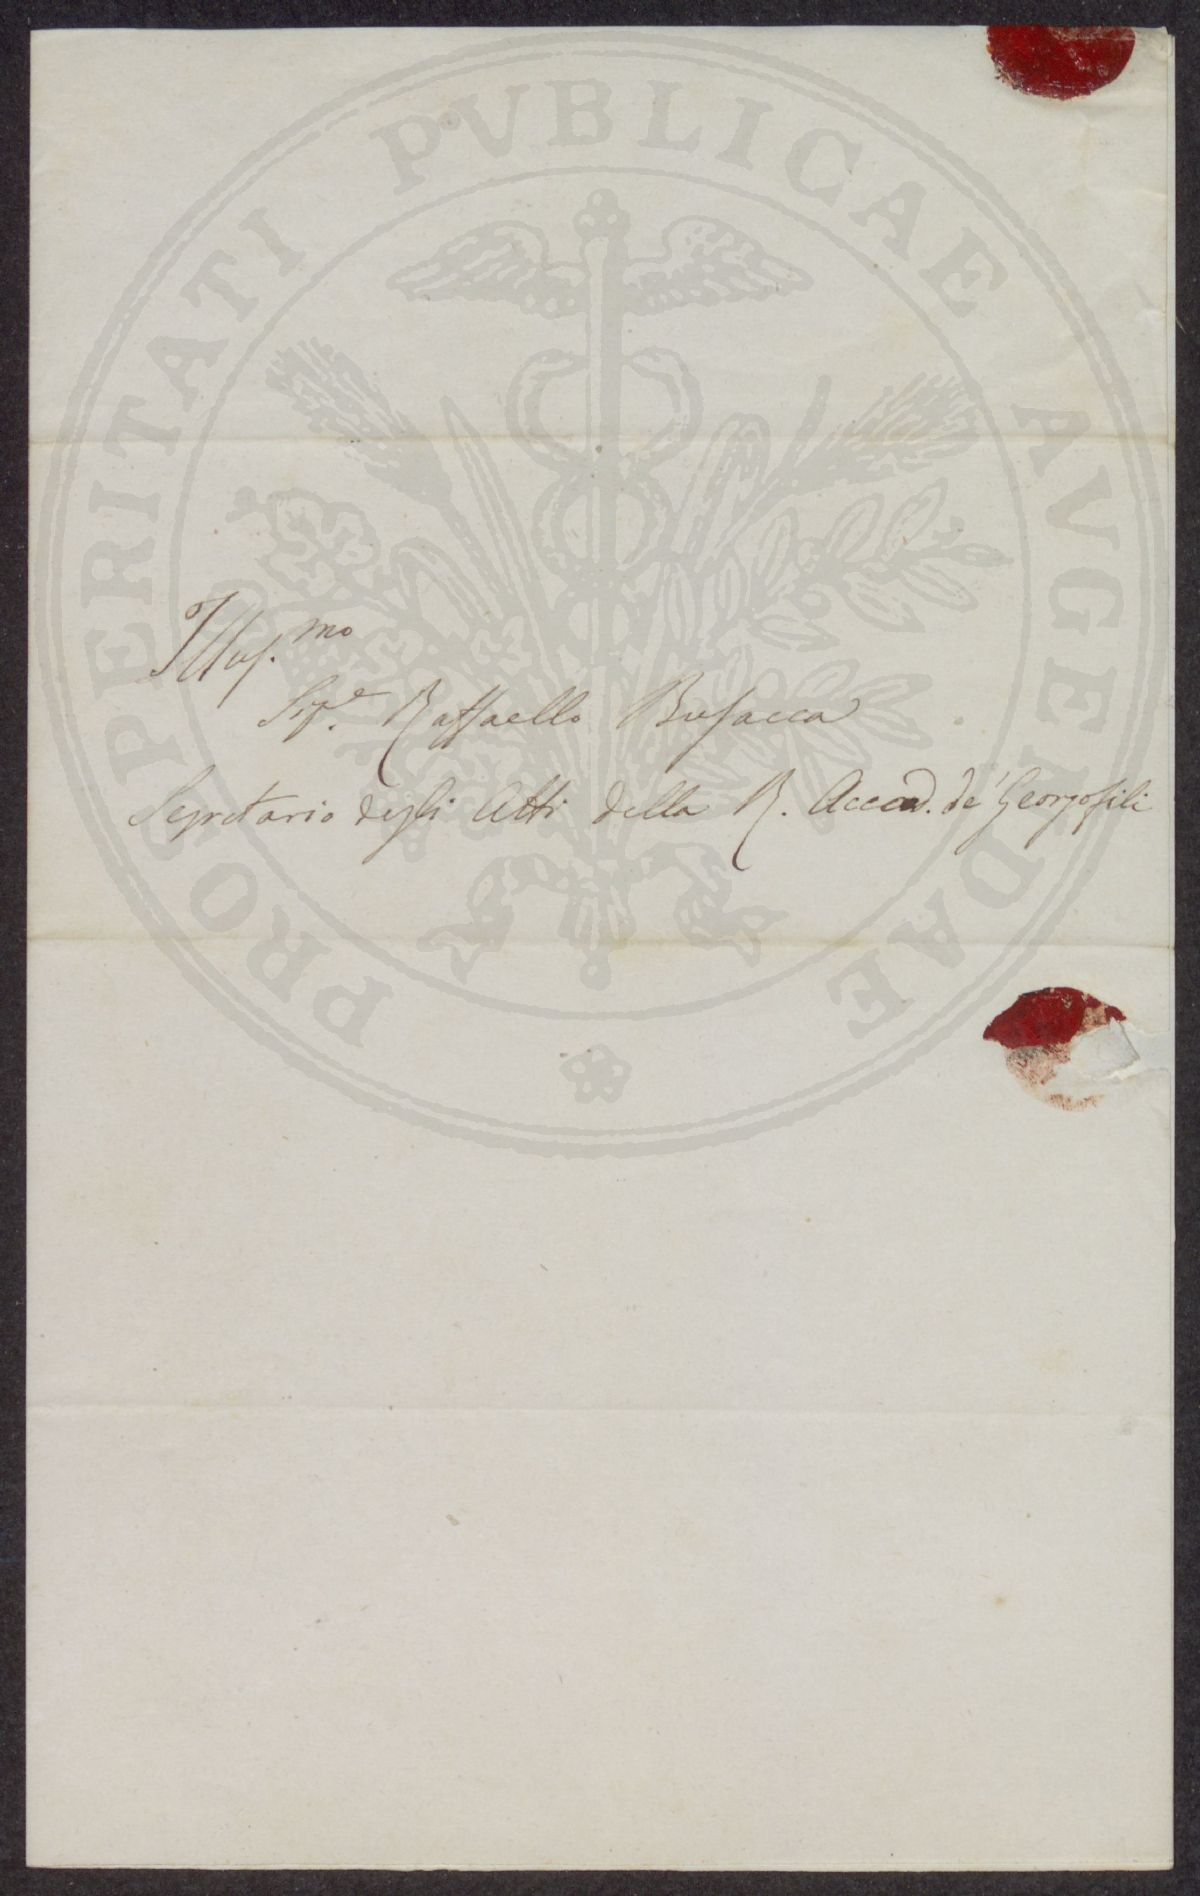 PROSPERITATI PVBLICAE AVGENDAE
Illus.mo
Sig.e Raffaello Busacca
Segretario degli Atti della R. Accad. de' Georgofili